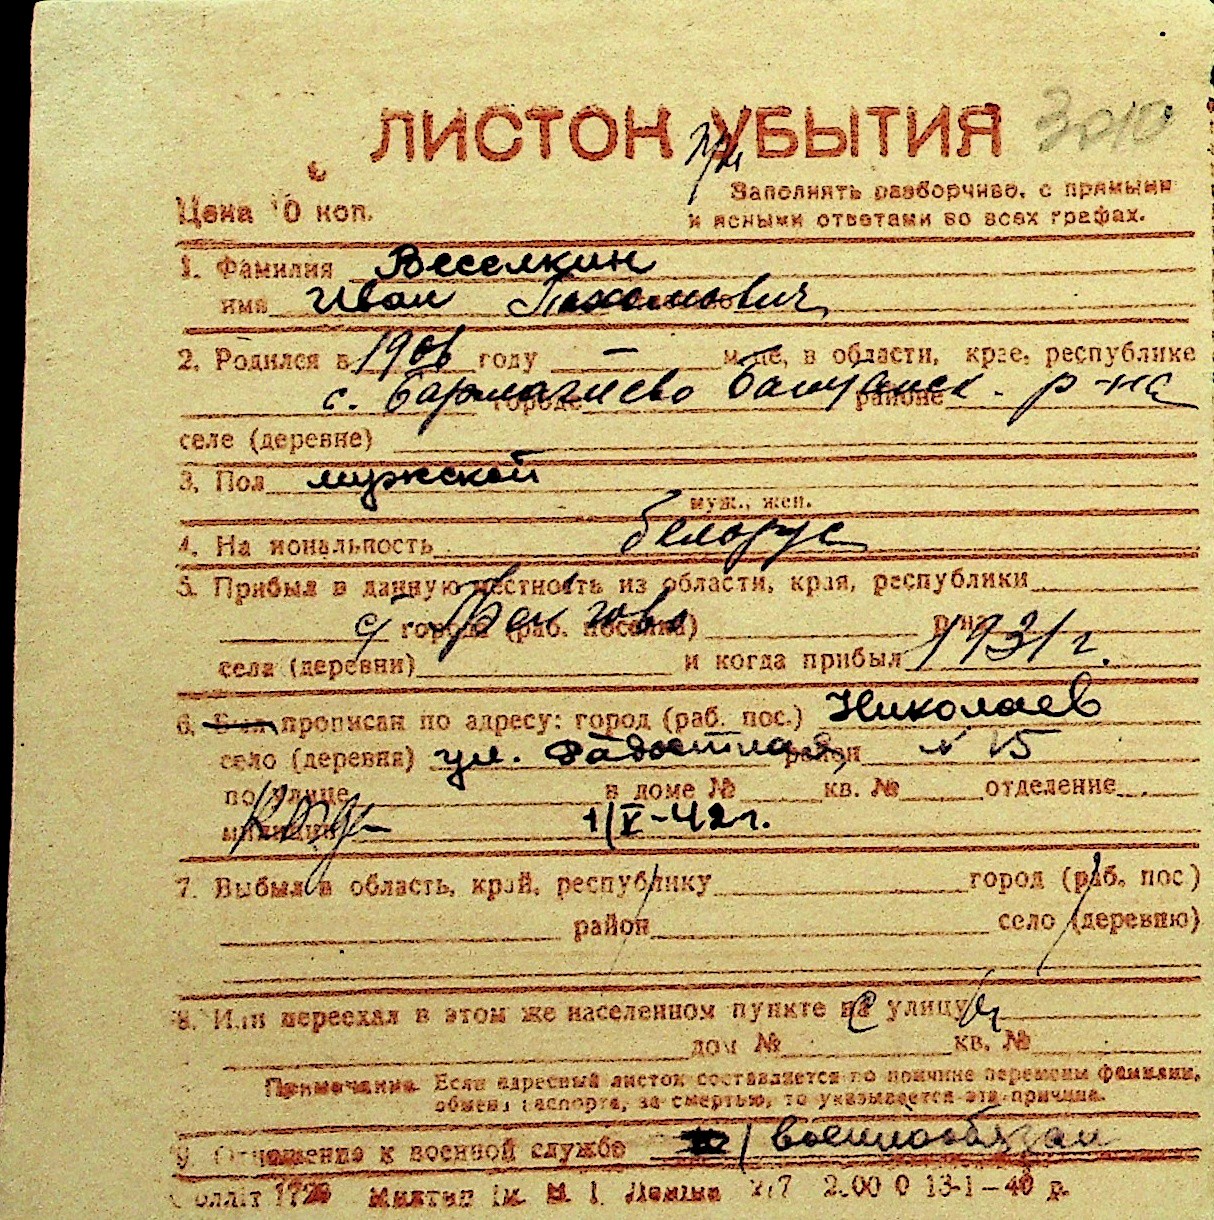 ЛИСТОК УБЫТИЯ 3010
при
Цена 10 коп.
Заполнять разборчиво, с прямыми
и ясными ответами во всех графах.
1. Фамилия Веселкин
имя Иван Пахомович
2. Родился в 1906 году — м-це, в области, крае, республике
с. Бармагиево Баштанск. р-на
городе районе
селе (деревне)
3. Пол мужской
муж., жен.
4. Национальность белорус
5. Прибыл в данную местность из области, края, республики
с/ города (раб. поселка) р-на
села (деревни) и когда прибыл 1931 г.
6. Был прописан по адресу: город (раб. пос.) Николаев
село (деревня) ул. Радостная, район № 15
по улице в доме № кв. № отделение
милиции 1/V-42 г.
7. Выбыл в область, край, республику город (раб. пос.)
район село (деревню)
8. Или переехал в этом же населенном пункте на улицу
дом № кв. №
Примечание. Если адресный листок составляется по причине перемены фамилии,
обмена паспорта, за смертью, то указывается эта причина.
9. Отношение к военной службе военнообязан
2.00 0 13-1-40 р.